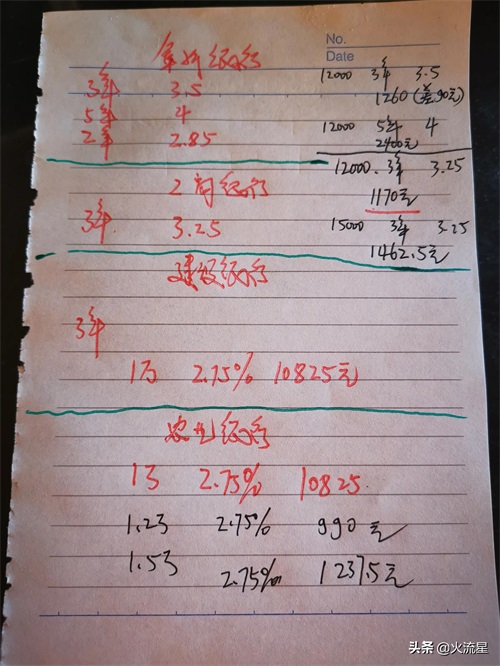 No.
Date
银行
3年 3.5
5年 4
2年 2.85
12000 3年 3.5
1260 (差90元)
12000 5年 4
2400元
12000. 3年 3.25
1170元
15000 3年 3.25
1462.5元
工商银行
3年 3.25
建设银行
3年
1万 2.75% 10825元
农业银行
1万 2.75% 10825.
1.2万 2.75% 990元
1.5万 2.75% 1237.5元
头条 @火流星